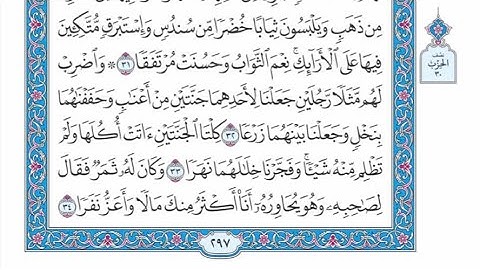 مِن ذَهَبٍ وَيَلْبَسُونَ ثِيَابًا خُضْرًا مِّن سُندُسٍ وَإِسْتَبْرَقٍ مُّتَّكِـِٔينَ
فِيهَا عَلَى ٱلْأَرَآئِكِ ۚ نِعْمَ ٱلثَّوَابُ وَحَسُنَتْ مُرْتَفَقًا ٣١ ۞ وَٱضْرِبْ
لَهُم مَّثَلًا رَّجُلَيْنِ جَعَلْنَا لِأَحَدِهِمَا جَنَّتَيْنِ مِنْ أَعْنَٰبٍ وَحَفَفْنَٰهُمَا
بِنَخْلٍ وَجَعَلْنَا بَيْنَهُمَا زَرْعًا ٣٢ كِلْتَا ٱلْجَنَّتَيْنِ ءَاتَتْ أُكُلَهَا وَلَمْ
تَظْلِم مِّنْهُ شَيْـًٔا ۚ وَفَجَّرْنَا خِلَٰلَهُمَا نَهَرًا ٣٣ وَكَانَ لَهُۥ ثَمَرٌ فَقَالَ
لِصَٰحِبِهِۦ وَهُوَ يُحَاوِرُهُۥٓ أَنَا۠ أَكْثَرُ مِنكَ مَالًا وَأَعَزُّ نَفَرًا ٣٤
٢٩٧
نصف
الحزب
٣٠